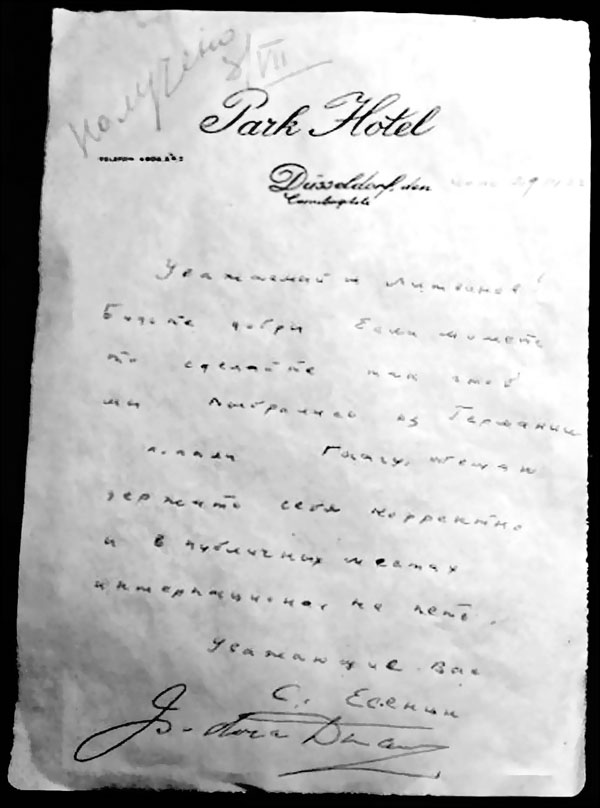 получено
8/VII
Park Hotel
Düsseldorf, den
Уважаемый т Литвинов!
Будьте добры Если можете
то сделайте так чтоб
мы выбрались из Германии
попали Гаагу, обещаю
держать себя корректно
и в публичных местах
интернационал не петь.
Уважающие Вас
С. Есенин
Isadora Duncan